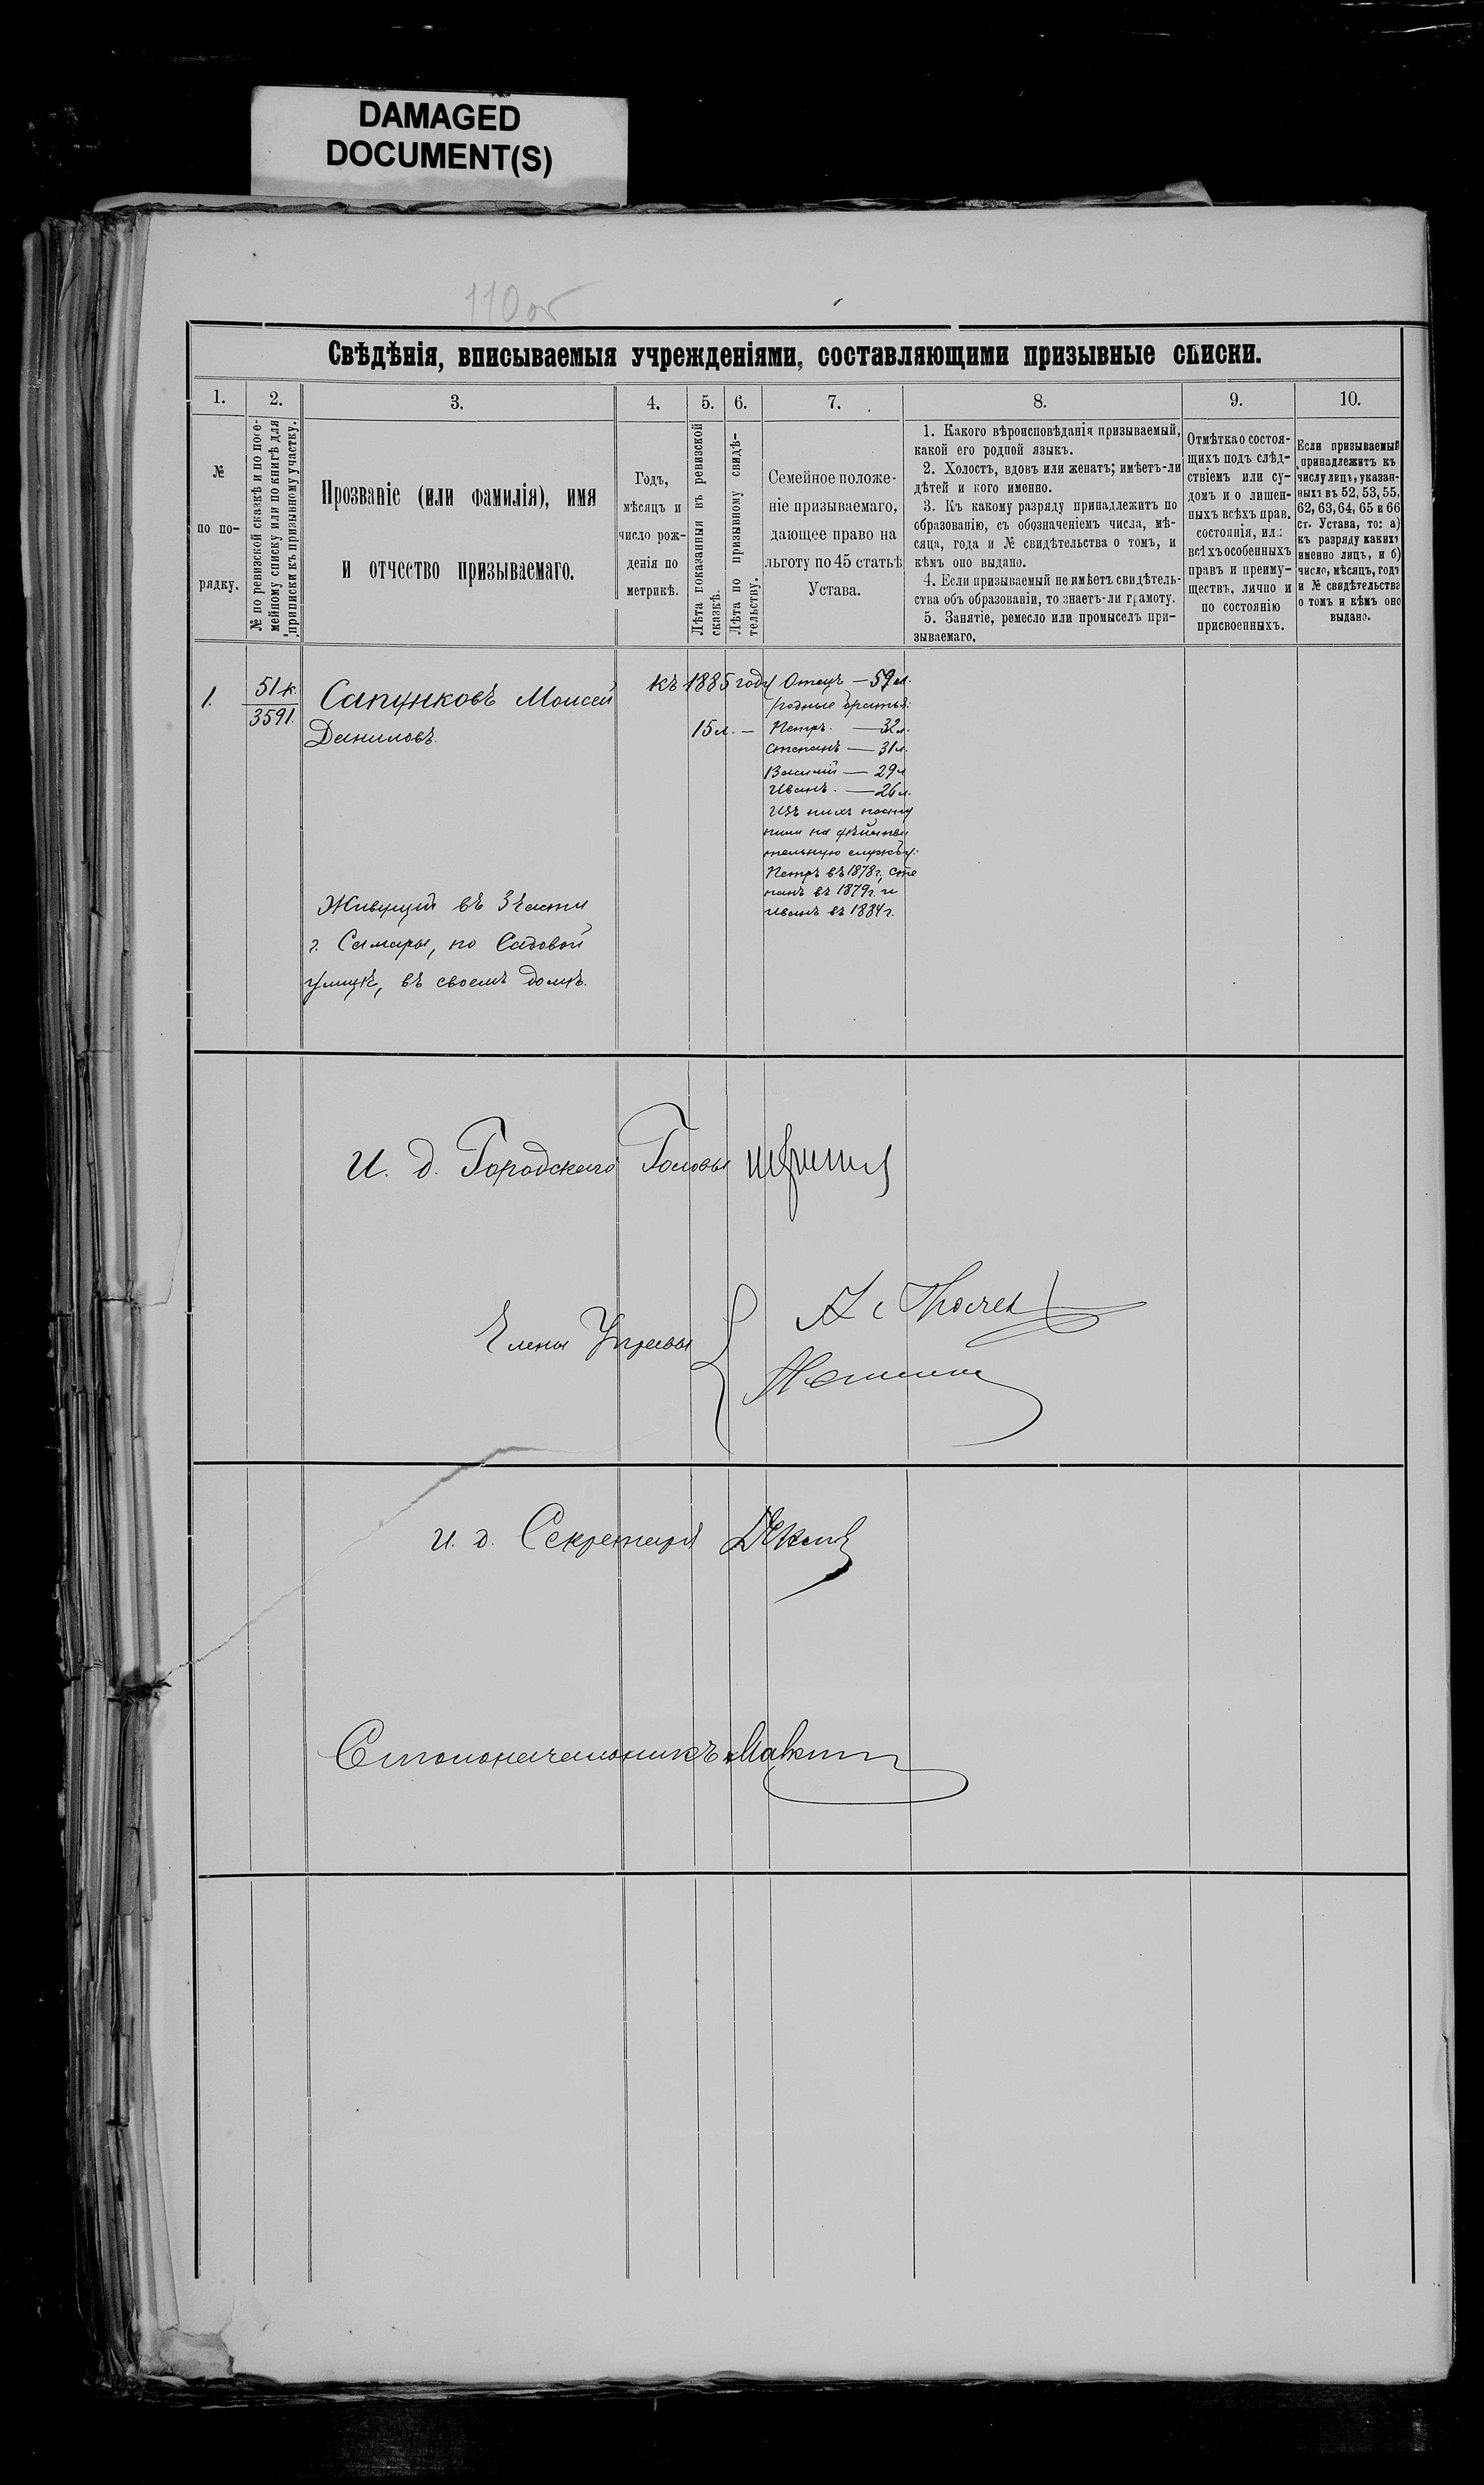 DAMAGED
DOCUMENT(S)
110об
Свѣдѣнія, вписываемыя учрежденіями, составляющими призывные списки.
1.
2.
3.
4.
5.
6.
7.
8.
9.
10.
№
по по-
рядку.
№ по ревизской сказкѣ и по посе-
мейному списку или по книгѣ для
приписки къ призывному участку.
Прозваніе (или фамилія), имя
и отчество призываемаго.
Годъ,
мѣсяцъ и
число рож-
денія по
метрикѣ.
Лѣта показанныя въ ревизской
сказкѣ.
Лѣта по призывному свидѣ-
тельству.
Семейное положе-
ніе призываемаго,
дающее право на
льготу по 45 статьѣ
Устава.
1. Какого вѣроисповѣданія призываемый,
какой его родной языкъ.
2. Холостъ, вдовъ или женатъ; имѣетъ-ли
дѣтей и кого именно.
3. Къ какому разряду принадлежитъ по
образованію, съ обозначеніемъ числа, мѣ-
сяца, года и № свидѣтельства о томъ, и
кѣмъ оно выдано.
4. Если призываемый не имѣетъ свидѣтель-
ства объ образованіи, то знаетъ-ли грамоту.
5. Занятіе, ремесло или промыселъ при-
зываемаго.
Отмѣтка о состоя-
щихъ подъ слѣд-
ствіемъ или су-
домъ и о лишен-
ныхъ всѣхъ прав.
состоянія, или
всѣхъ особенныхъ
правъ и преиму-
ществъ, лично и
по состоянію
присвоенныхъ.
Если призываемый
принадлежитъ къ
числу лицъ, указан-
ныхъ въ 52, 53, 55,
62, 63, 64, 65 и 66
ст. Устава, то: а)
къ разряду какихъ
именно лицъ, и б)
число, мѣсяцъ, годъ
и № свидѣтельства
о томъ и кѣмъ оно
выдано.
1.
51 к.
3591.
Сапунковъ Моисей
Даниловъ.
къ 1885 году
15 л. —
Отецъ — 59 л.
родные братья:
Петръ. — 32 л.
Степанъ — 31 л.
Василій — 29 л
Иванъ. — 26 л.
Изъ нихъ посту
пили на дѣйстви
тельную службу:
Петръ въ 1878 г, Сте
панъ въ 1879 г. и
Иванъ въ 1884 г.
Живущій въ 3 части
г. Самары, по Садовой
улицѣ, въ своемъ домѣ.
И. д. Городского Головы
Члены Управы
И. д. Секретаря
Столоначальникъ